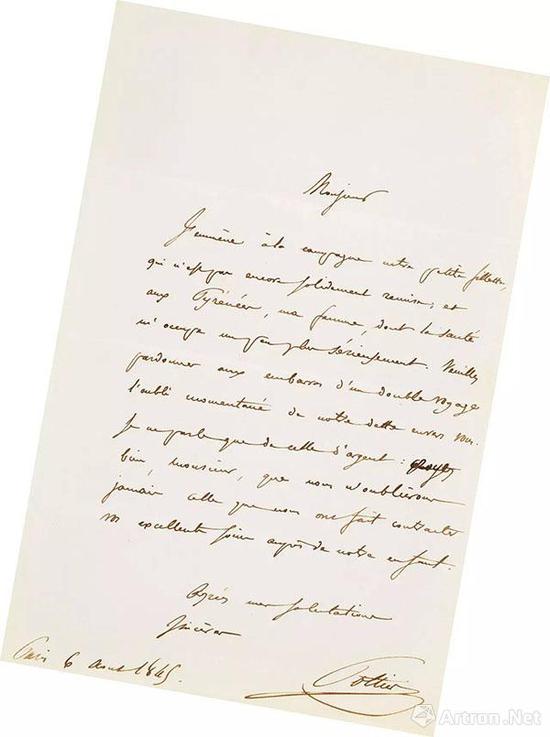 Monsieur
J'emmène à la campagne notre petite fillette,
qui n'est pas encore solidement remise; et
aux Pyrénées, ma femme, dont la santé
m'occupe un peu plus sérieusement. Veuillez
pardonner aux embarras d'un double voyage
l'oubli momentané de notre dette envers vous.
Je ne parle que de celle d'argent : croyez
bien, monsieur, que nous n'oublierons
jamais celle que nous ont fait contracter
vos excellents soins auprès de notre enfant.
Agréez mes salutations
sincères
Paris 6 août 1845.
Pottier
Artron.Net